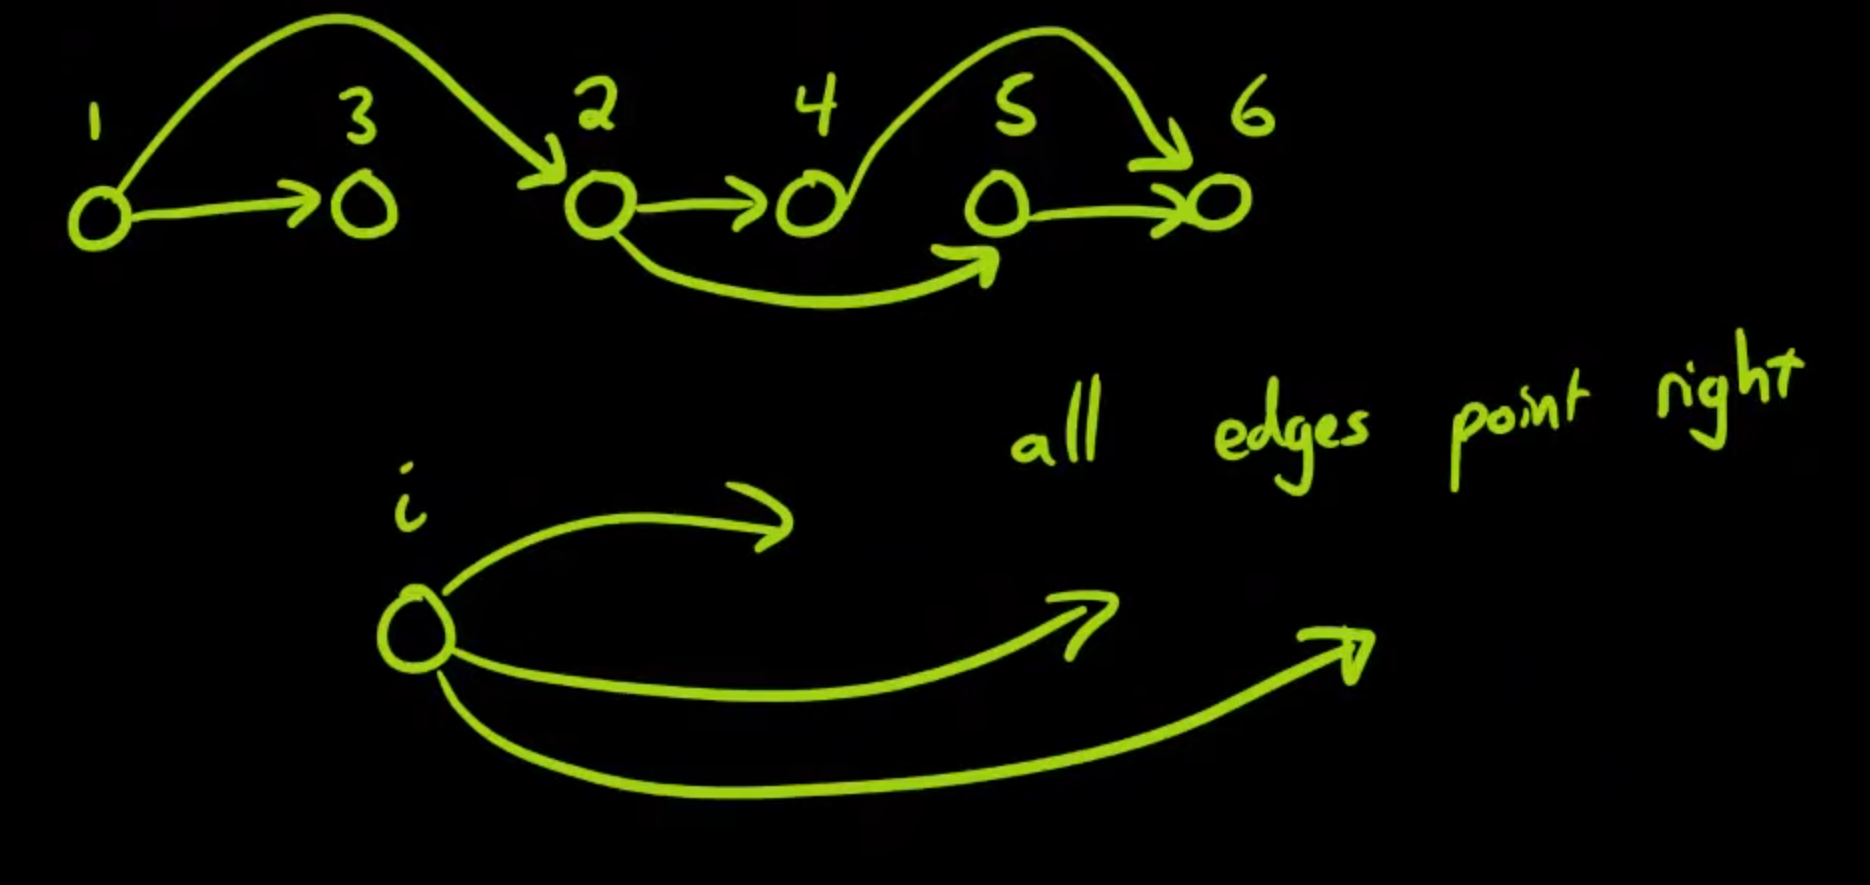 1 3 2 4 5 6
all edges point right
i